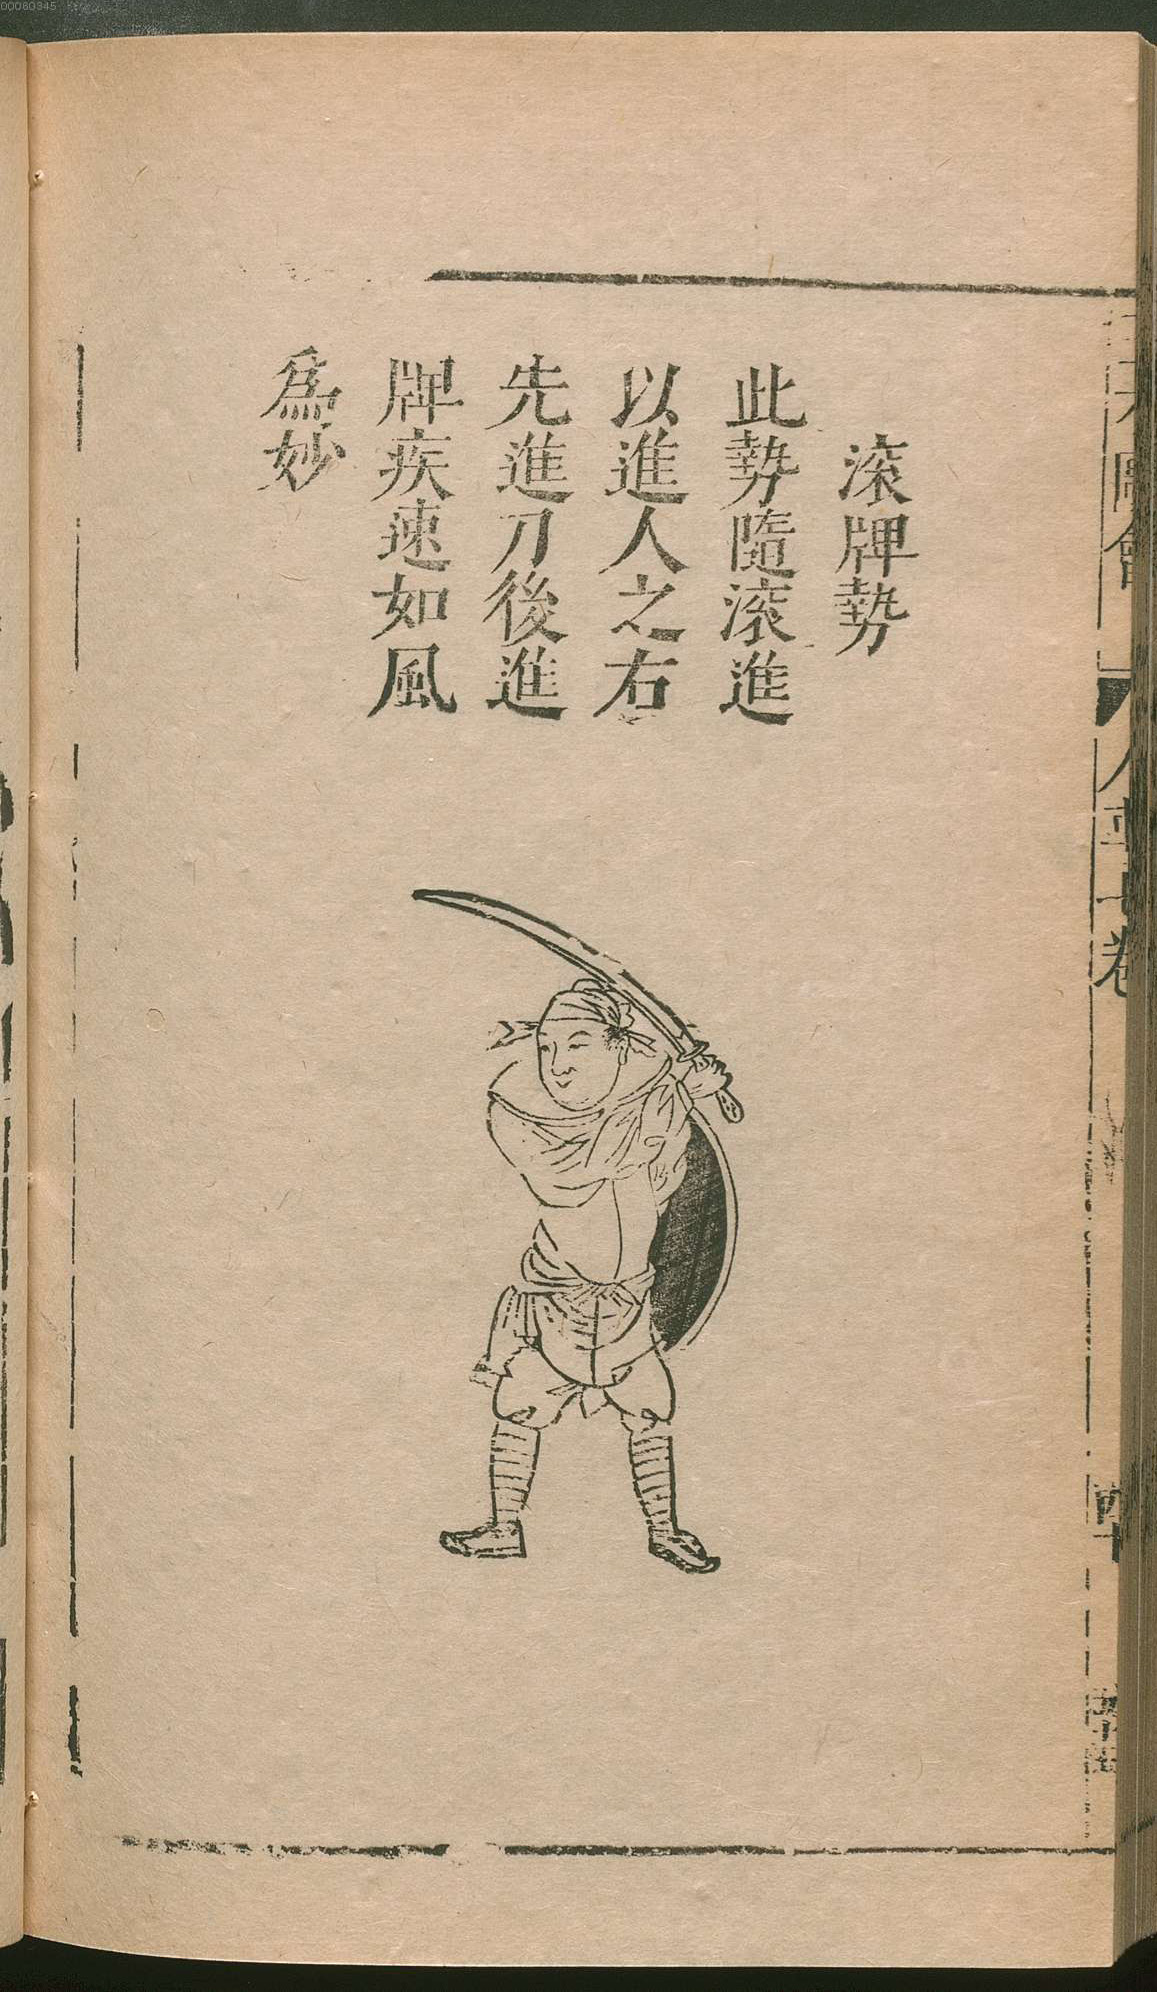 滚牌勢
此勢隨滚進
以進人之右
先進刀後進
牌疾速如風
爲妙
00080345